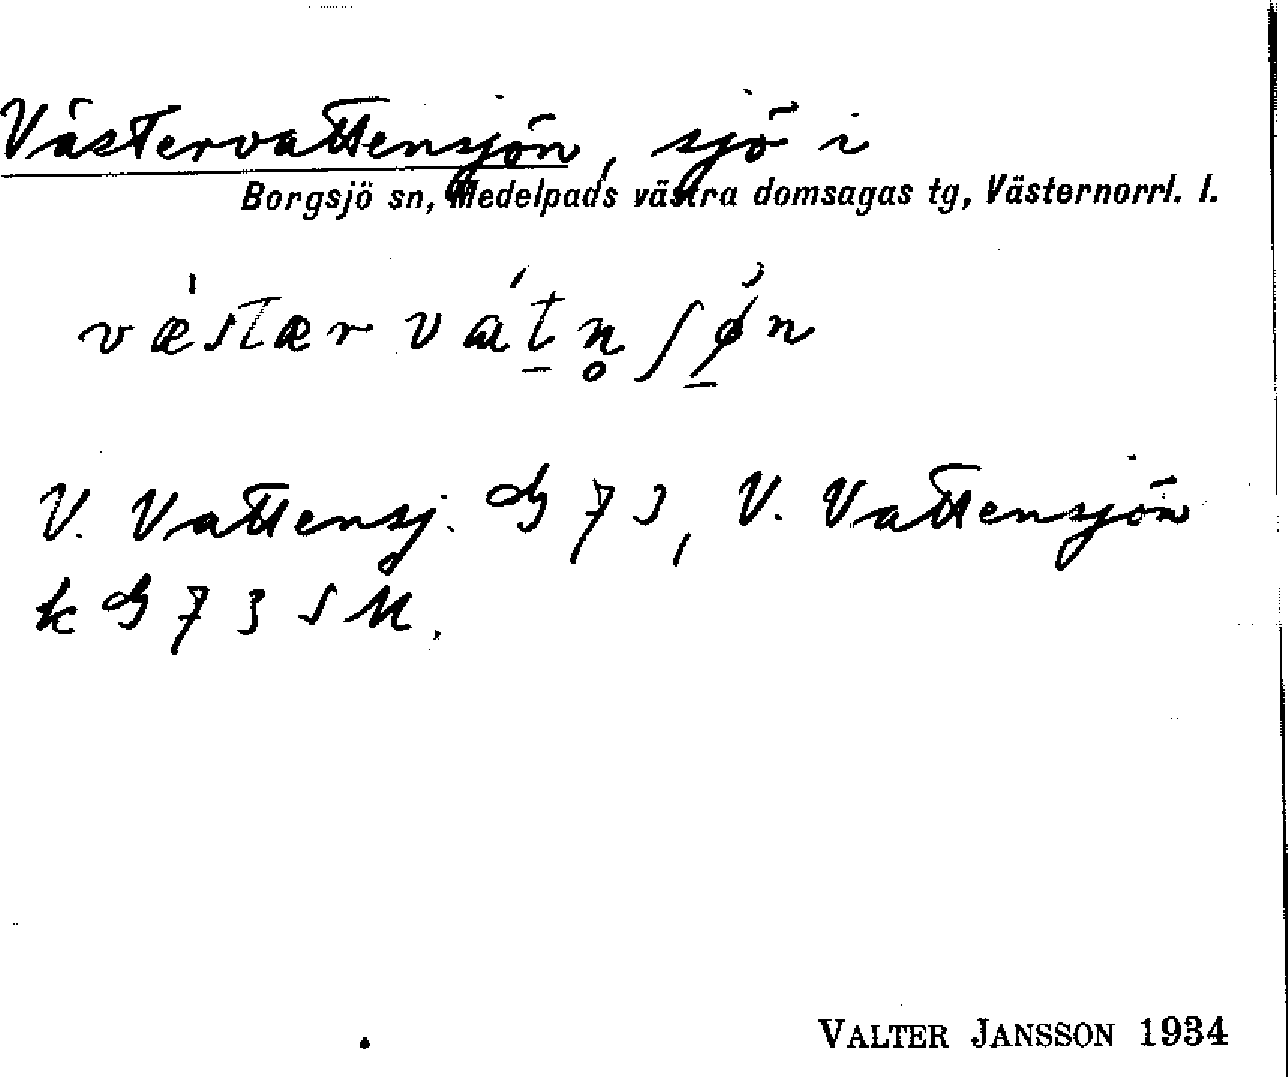 Västervattensjön, sjö i
Borgsjö sn, Medelpads västra domsagas tg, Västernorrl. l.
væ̀stær vát̲n̥ ʃø̲̀n
V. Vattensj. G 73, V. Vattensjön
k G 73 S N.
VALTER JANSSON 1934